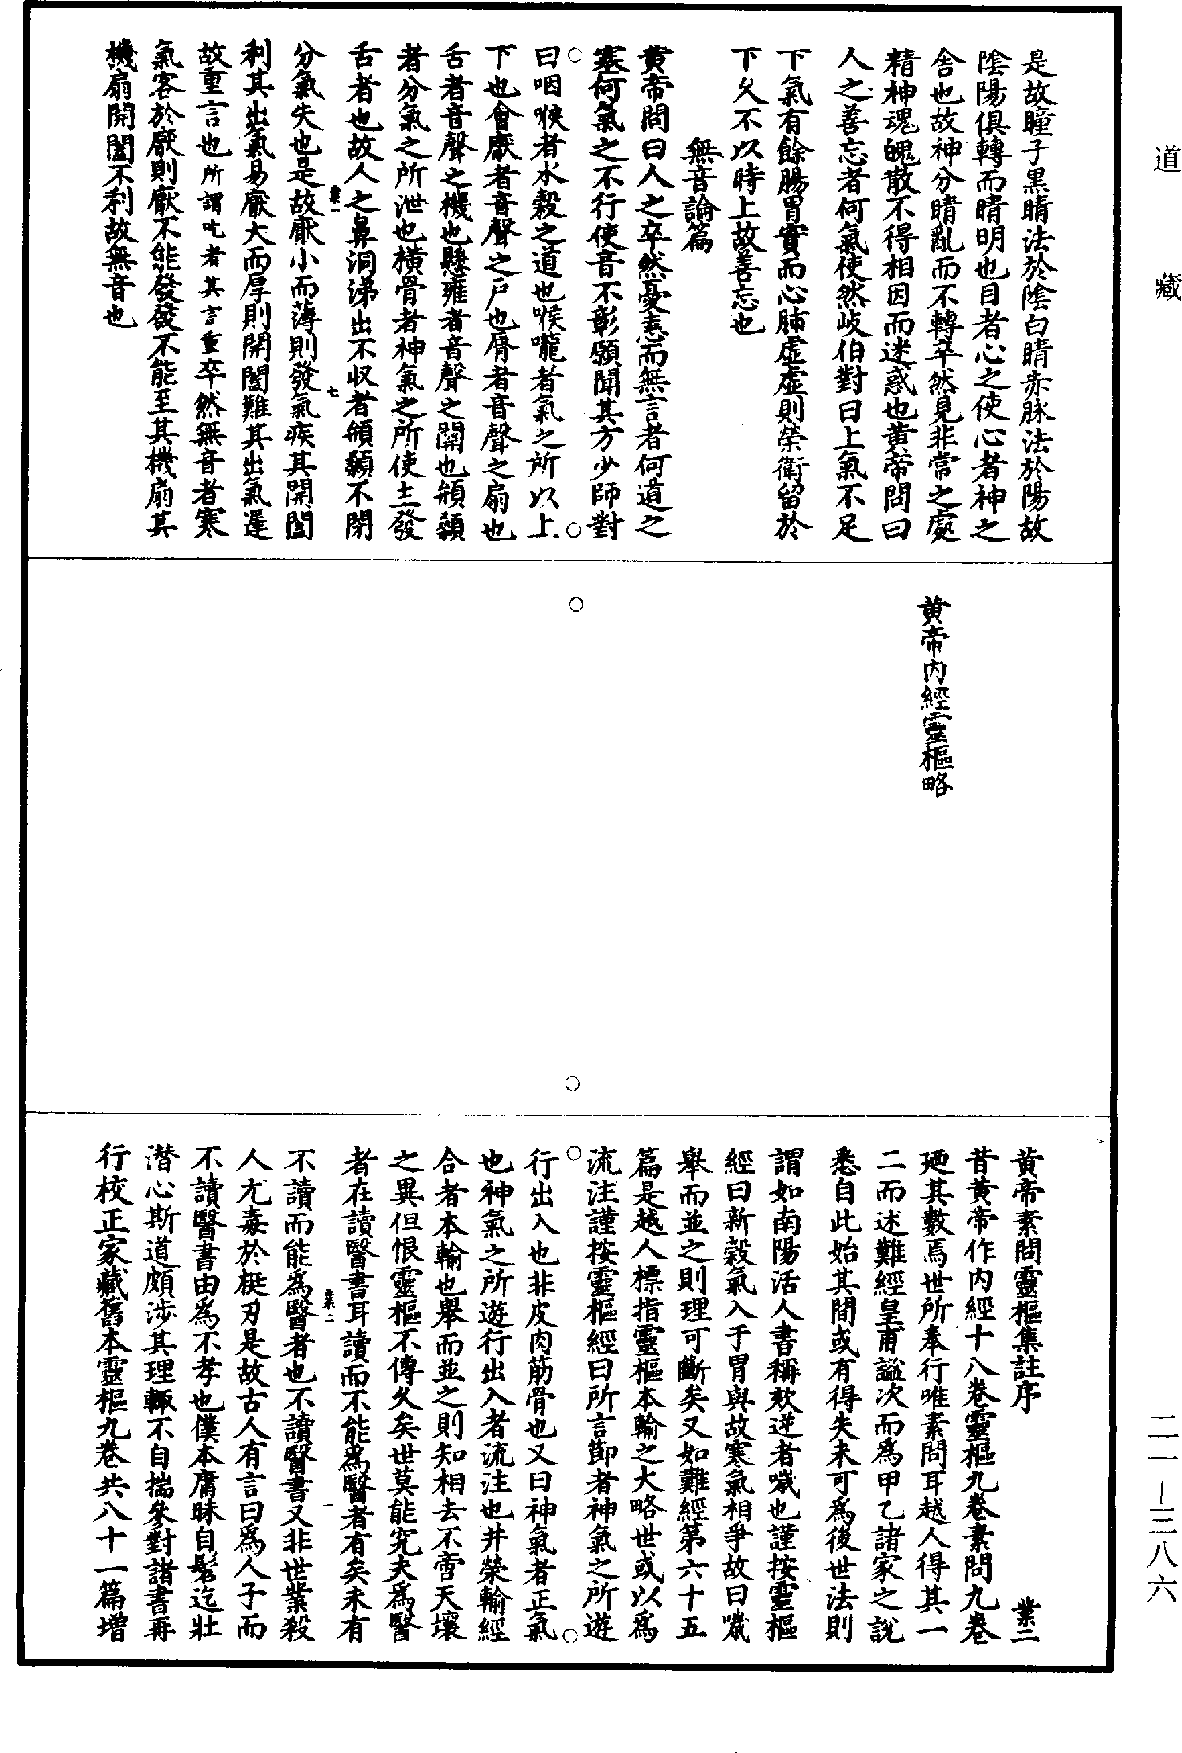 道藏
二一—三八六
是故瞳子黒睛法於陰白睛赤脉法於陽故
陰陽俱轉而睛明也目者心之使心者神之
舍也故神分睛亂而不轉卒然見非常之處
精神魂魄散不得相因而迷惑也黄帝問曰
人之善忘者何氣使然岐伯對曰上氣不足
下氣有餘腸胃實而心肺虚虚則榮衛留於
下久不以時上故善忘也
無音論篇
黄帝問曰人之卒然憂恚而無言者何道之
塞何氣之不行使音不彰願聞其方少師對
曰咽喉者水穀之道也喉嚨者氣之所以上
下也會厭者音聲之户也脣者音聲之扇也
舌者音聲之機也懸雍者音聲之關也頏顙
者分氣之所泄也横骨者神氣之所使主發
舌者也故人之鼻洞涕出不收者頏顙不閉
業一 七
分氣失也是故厭小而薄則發氣疾其開闔
利其出氣易厭大而厚則開闔難其出氣遲
故重言也所謂吃者其言重卒然無音者寒
氣客於厭則厭不能發發不能至其機扇其
機扇開闔不利故無音也
黄帝内經靈樞略
黄帝素問靈樞集註序 業二
昔黄帝作内經十八卷靈樞九卷素問九卷
廼其數焉世所奉行唯素問耳越人得其一
二而述難經皇甫謐次而爲甲乙諸家之説
悉自此始其間或有得失未可爲後世法則
謂如南陽活人書稱欬逆者噦也謹按靈樞
經曰新穀氣入于胃與故寒氣相爭故曰噦
舉而並之則理可斷矣又如難經第六十五
篇是越人標指靈樞本輸之大略世或以爲
流注謹按靈樞經曰所言節者神氣之所遊
行出入也非皮肉筋骨也又曰神氣者正氣
也神氣之所遊行出入者流注也井滎輸經
合者本輸也舉而並之則知相去不啻天壤
之異但恨靈樞不傳久矣世莫能究夫爲醫
者在讀醫書耳讀而不能爲醫者有矣未有
業二 一
不讀而能爲醫者也不讀醫書又非世業殺
人尤毒於梃刃是故古人有言曰爲人子而
不讀醫書由爲不孝也僕本庸昧自髫迄壯
潜心斯道頗涉其理輒不自揣參對諸書再
行校正家藏舊本靈樞九卷共八十一篇增